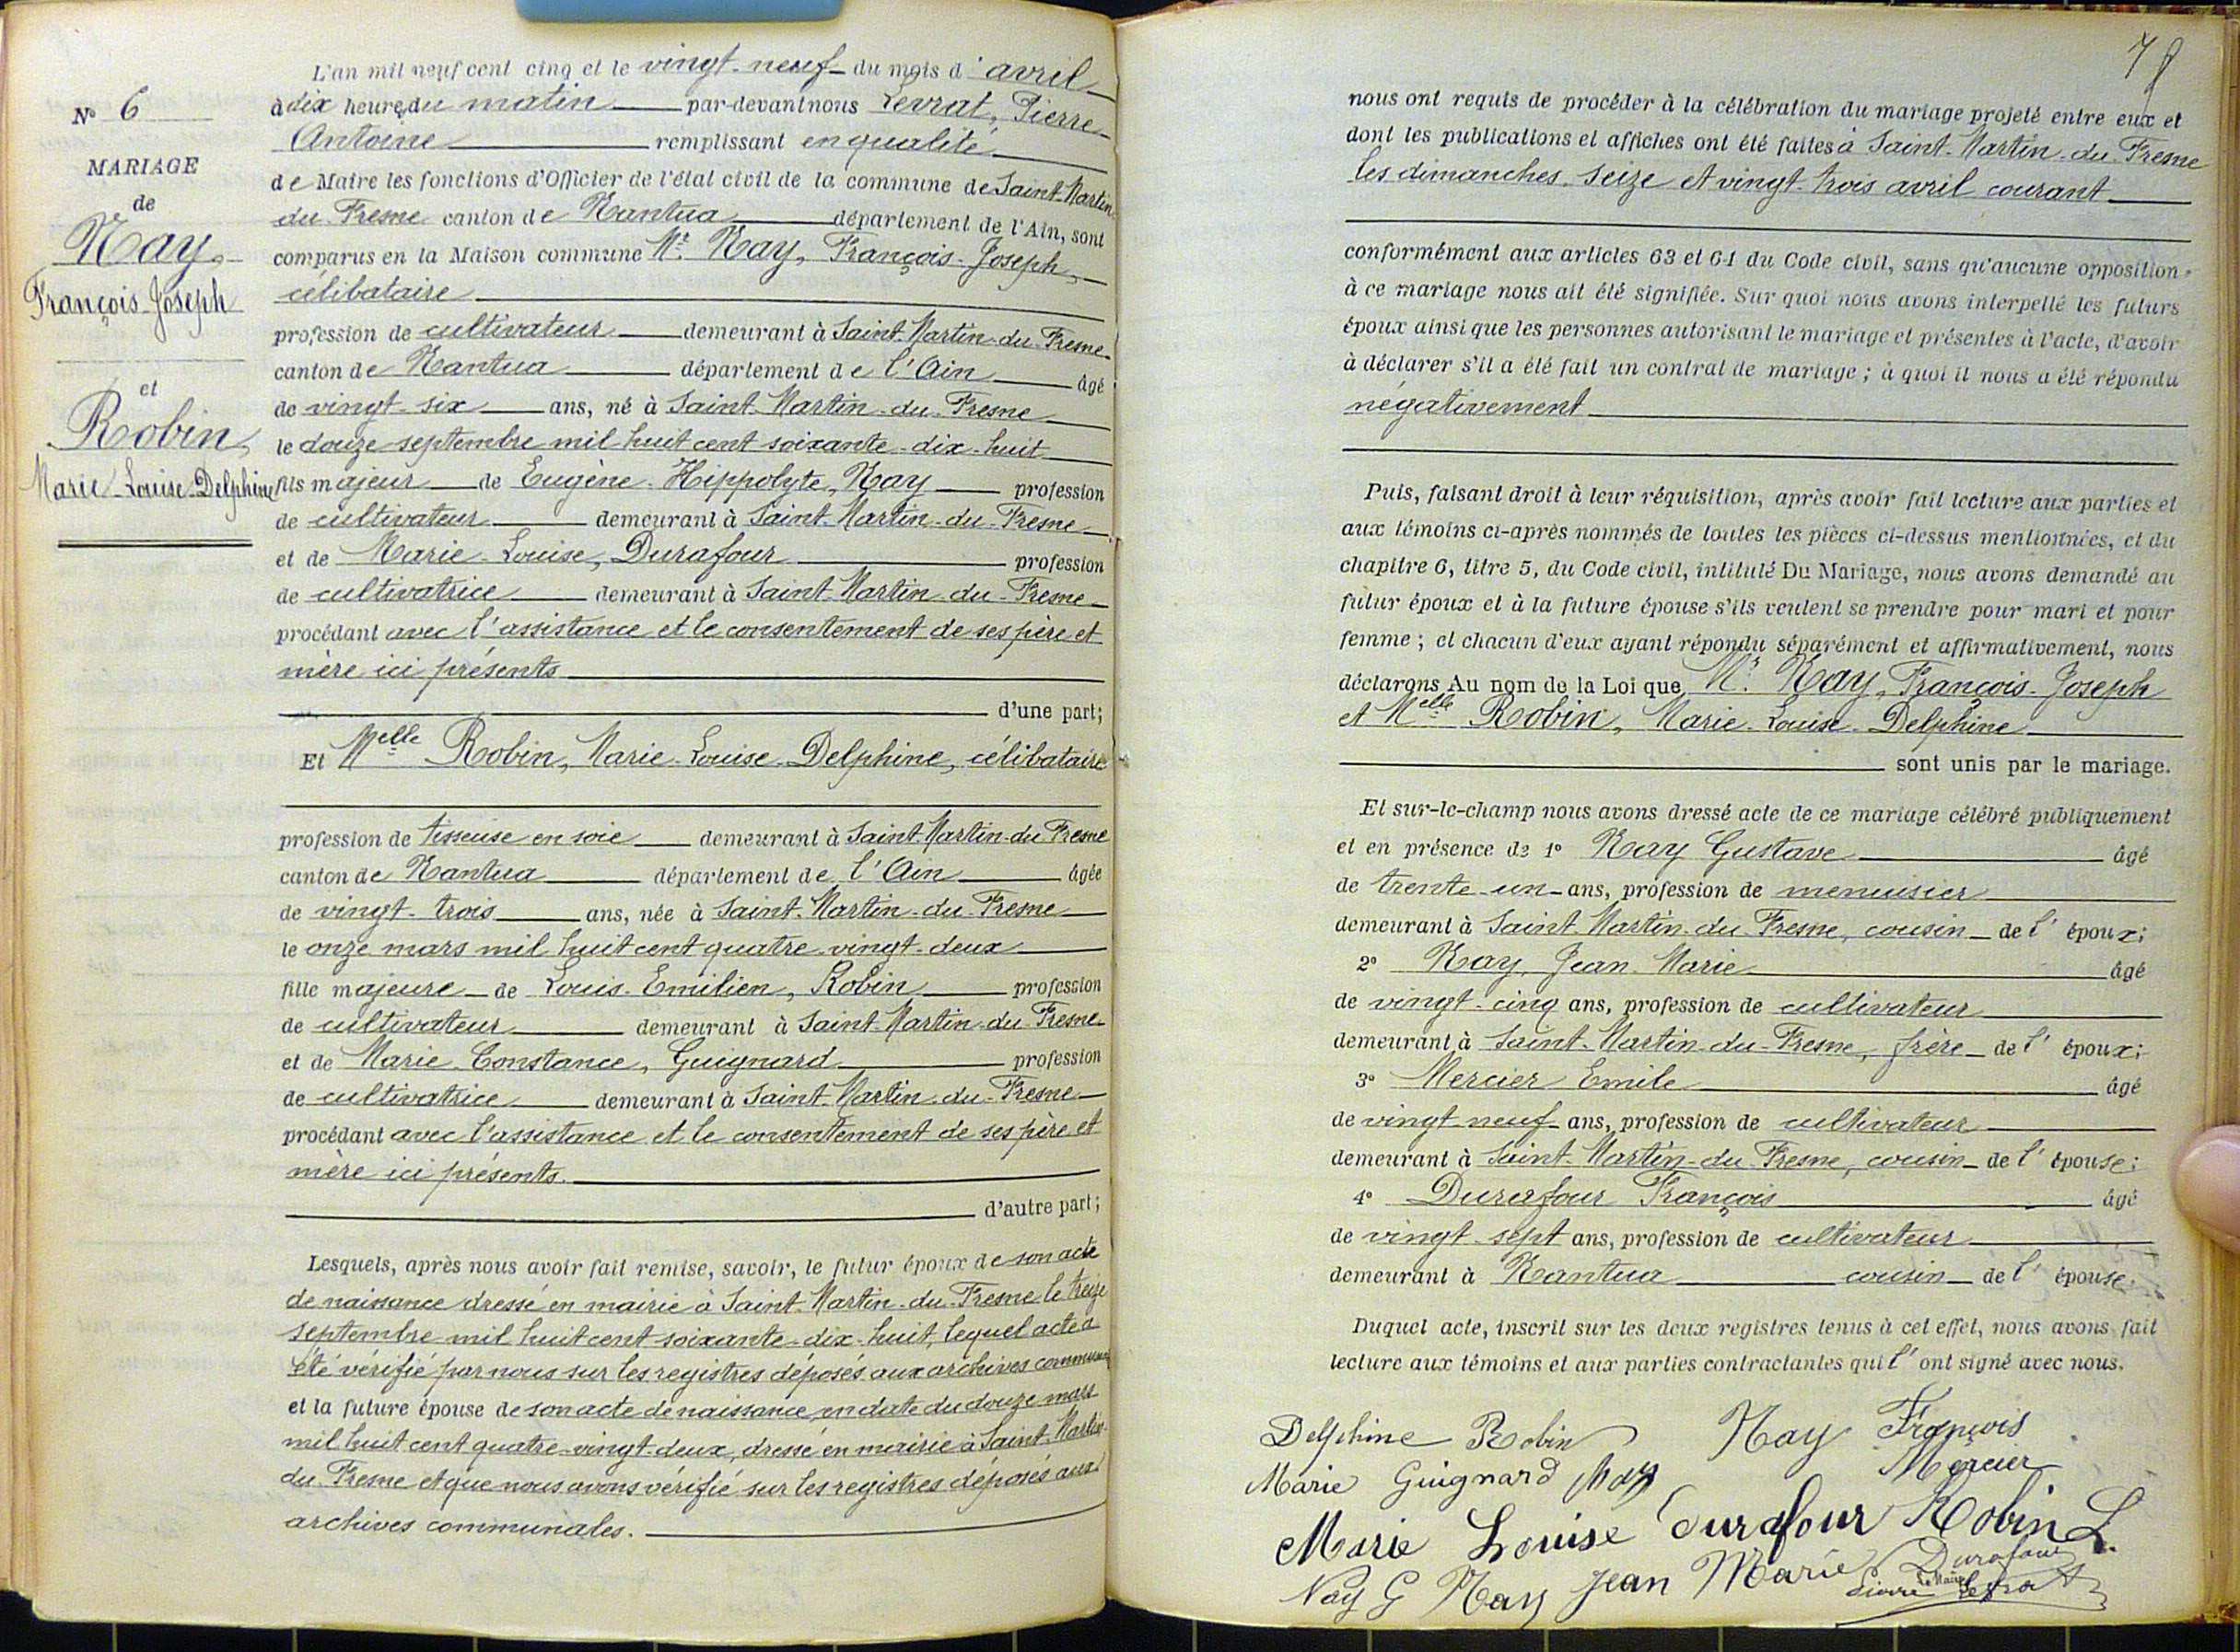 L'an mil neuf cent cinq et le vingt-neuf du mois d'avril
N° 6
à dix heures du matin par-devant nous Levrat, Pierre
Antoine remplissant en qualité
MARIAGE
de Maire les fonctions d'Officier de l'état civil de la commune de Saint-Martin
de
du Fresne canton de Nantua département de l'Ain, sont
Nay,
comparus en la Maison commune Mr. Nay, François-Joseph,
François-Joseph
célibataire
profession de cultivateur demeurant à Saint-Martin-du-Fresne
canton de Nantua département de l'Ain âgé
et
de vingt-six ans, né à Saint-Martin-du-Fresne
Robin,
le douze septembre mil huit cent soixante-dix-huit
Marie-Louise-Delphine
fils majeur de Eugène-Hippolyte, Nay profession
de cultivateur demeurant à Saint-Martin-du-Fresne
et de Marie-Louise, Durafour profession
de cultivatrice demeurant à Saint-Martin-du-Fresne
procédant avec l'assistance et le consentement de ses père et
mère ici présents
d'une part;
Et Melle Robin, Marie-Louise-Delphine, célibataire
profession de tisseuse en soie demeurant à Saint-Martin-du-Fresne
canton de Nantua département de l'Ain âgée
de vingt-trois ans, née à Saint-Martin-du-Fresne
le onze mars mil huit cent quatre-vingt-deux
fille majeure de Louis-Emilien, Robin profession
de cultivateur demeurant à Saint-Martin-du-Fresne
et de Marie-Constance, Guignard profession
de cultivatrice demeurant à Saint-Martin-du-Fresne
procédant avec l'assistance et le consentement de ses père et
mère ici présents.
d'autre part;
Lesquels, après nous avoir fait remise, savoir, le futur époux de son acte
de naissance dressé en mairie à Saint-Martin-du-Fresne le treize
septembre mil huit cent soixante-dix-huit, lequel acte a
été vérifié par nous sur les registres déposés aux archives
et la future épouse de son acte de naissance en date du douze mars
mil huit cent quatre-vingt-deux, dressé en mairie à Saint-Martin-
du-Fresne et que nous avons vérifié sur les registres déposés aux
archives communales.
nous ont requis de procéder à la célébration du mariage projeté entre eux et
dont les publications et affiches ont été faites à Saint-Martin-du-Fresne
les dimanches seize et vingt-trois avril courant
conformément aux articles 63 et 64 du Code civil, sans qu'aucune opposition
à ce mariage nous ait été signifiée. Sur quoi nous avons interpellé les futurs
époux ainsi que les personnes autorisant le mariage et présentes à l'acte, d'avoir
à déclarer s'il a été fait un contrat de mariage ; à quoi il nous a été répondu
négativement
Puis, faisant droit à leur réquisition, après avoir fait lecture aux parties et
aux témoins ci-après nommés de toutes les pièces ci-dessus mentionnées, et du
chapitre 6, titre 5, du Code civil, intitulé Du Mariage, nous avons demandé au
futur époux et à la future épouse s'ils veulent se prendre pour mari et pour
femme ; et chacun d'eux ayant répondu séparément et affirmativement, nous
déclarons Au nom de la Loi que Mr. Nay, François-Joseph
et Melle Robin, Marie-Louise-Delphine
sont unis par le mariage.
Et sur-le-champ nous avons dressé acte de ce mariage célébré publiquement
et en présence de 1° Nay Gustave âgé
de trente-un ans, profession de menuisier
demeurant à Saint-Martin-du-Fresne, cousin de l'époux;
2° Nay, Jean-Marie âgé
de vingt-cinq ans, profession de cultivateur
demeurant à Saint-Martin-du-Fresne, frère de l'époux;
3° Mercier Emile âgé
de vingt neuf ans, profession de cultivateur
demeurant à Saint-Martin-du-Fresne, cousin de l'épouse;
4° Durafour François âgé
de vingt-sept ans, profession de cultivateur
demeurant à Nantua cousin de l'épouse.
Duquel acte, inscrit sur les deux registres tenus à cet effet, nous avons fait
lecture aux témoins et aux parties contractantes qui l'ont signé avec nous.
Delphine Robin Nay François
Marie Guignard Nay Mercier
Marie Louise Durafour Robin L.
Nay G Nay Jean Marie Durafour
Le Maire
Pierre Levrat